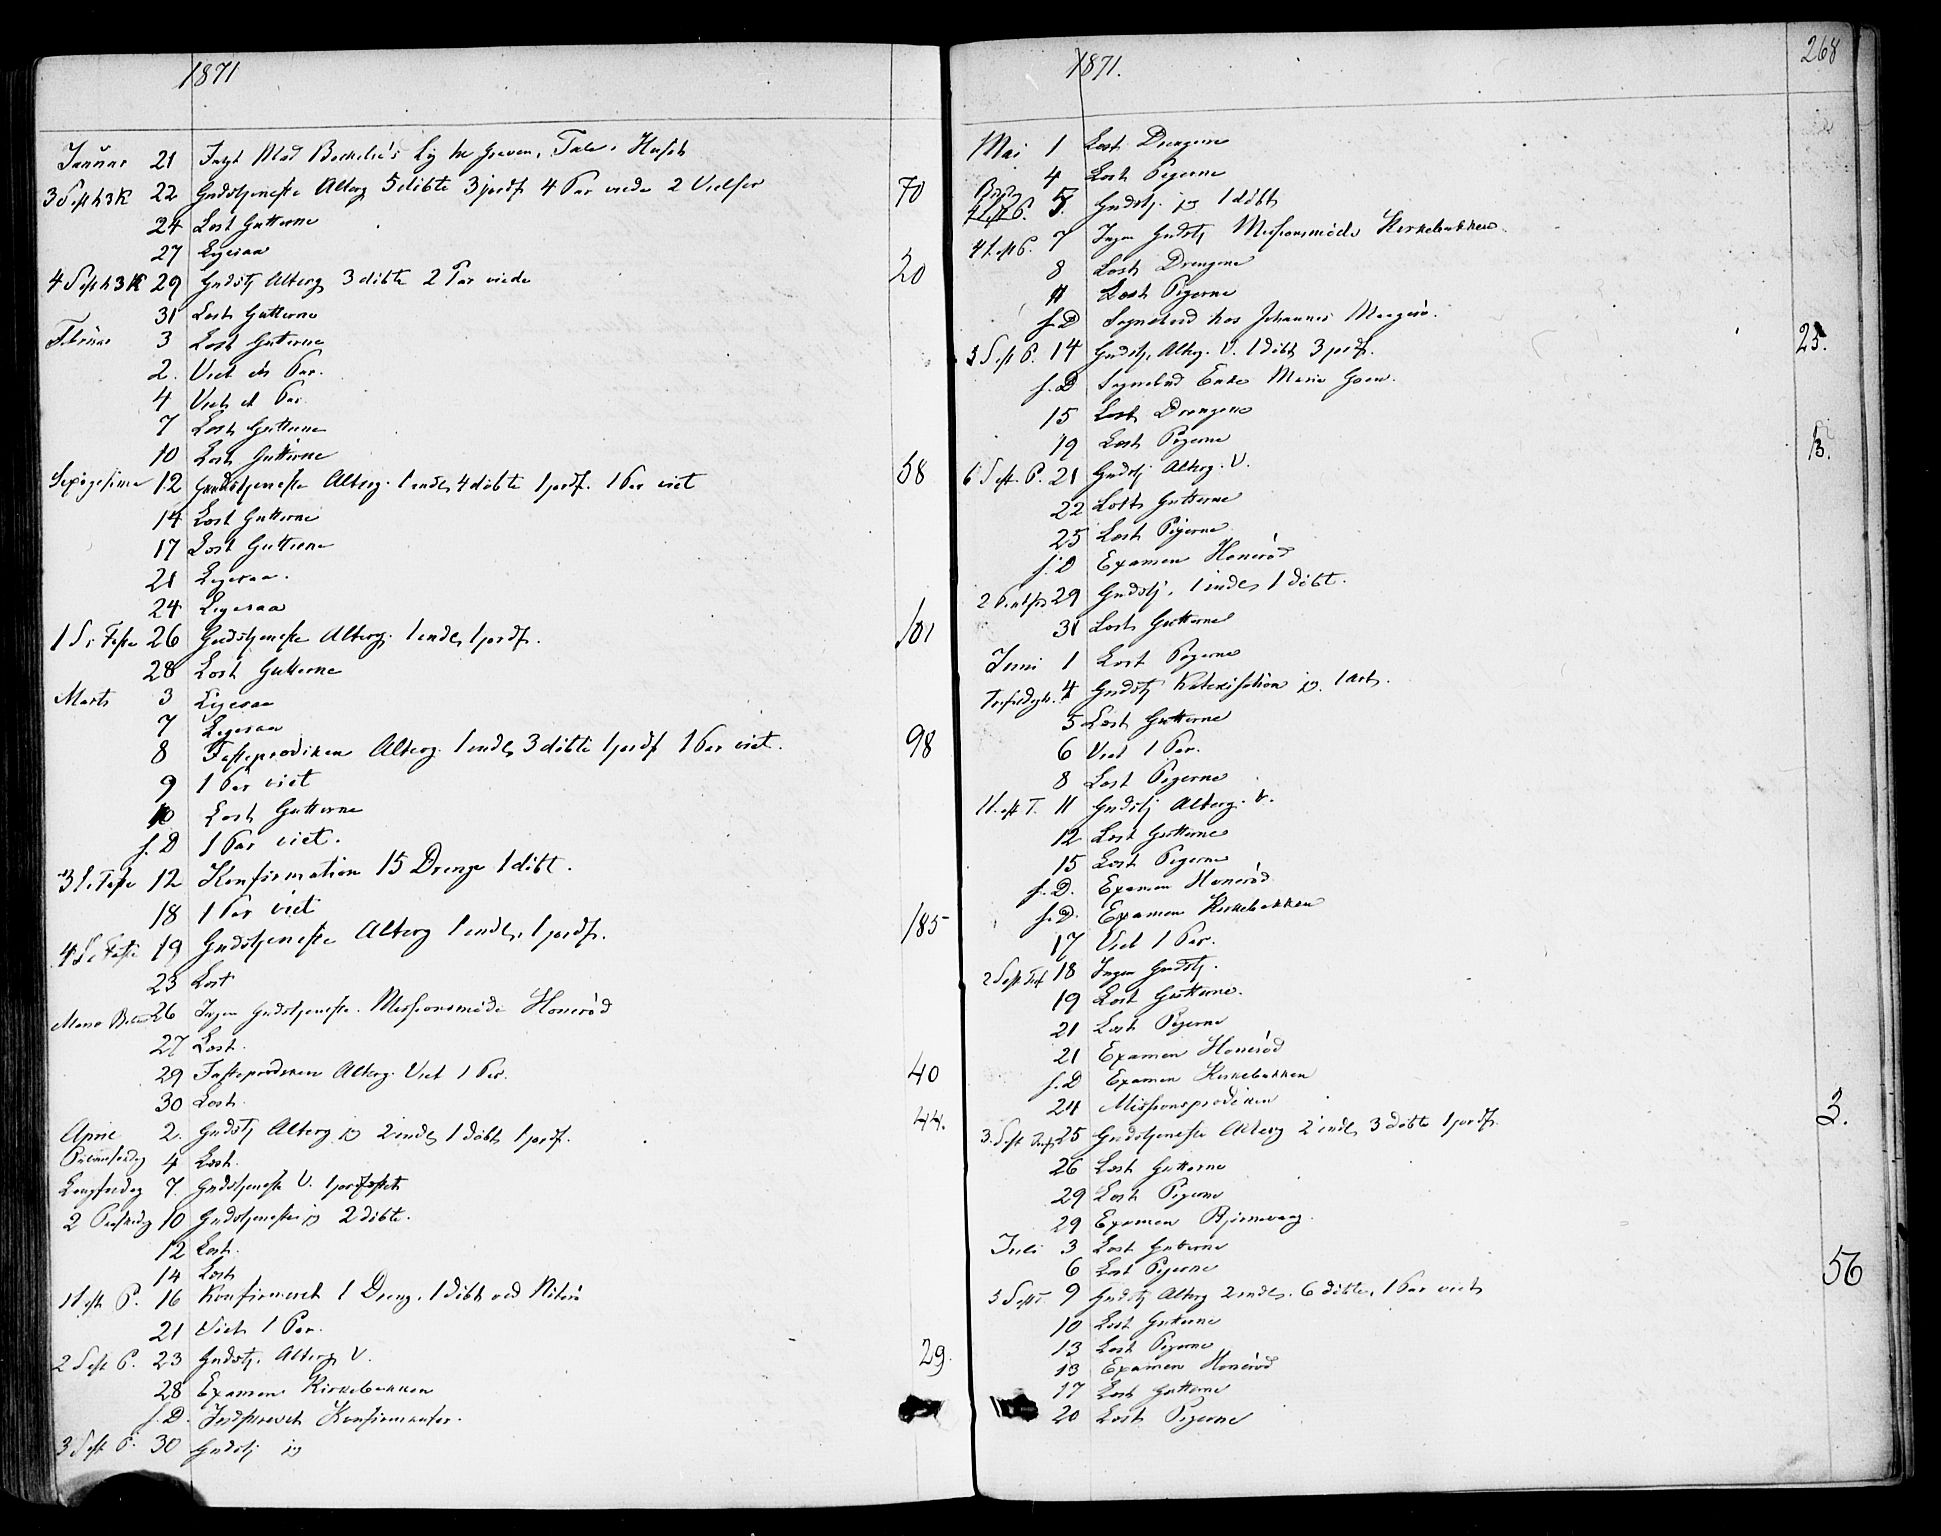 1871
Januar 21 Mad Lig Graven, Tale i Huset
3 S e h 3 K 22 Gudstjeneste Alterg 5 döbte 3 jordf 4 Par viede 2 70
24 Læst Gutterne
27 Ligesaa
4 S e h 3 K 29 Gudstj Alterg 3 döbte 2 Par viede 20
31 Læst Gutterne
Februar 3 Læst Gutterne
2. Viet et Par.
4 Viet et Par
7 Læst Gutterne
10 Læst Gutterne
Sexagesima 12 Gudstjeneste Alterg. 1 indl, 4 döbte 1 jordf. 1 Par viet 58
14 Læst Gutterne
17 Læst Gutterne
21 Ligesaa.
24 Ligesaa
1 S i Faste 26 Gudstjeneste Alterg. 1 indl, 1 jordf. 101
28 Læst Gutterne
Marts 3 Ligesaa
7 Ligesaa
8 Fasteprædiken Alterg. 1 indl, 3 döbte 1 jordf 1 Par viet. 98
9 1 Par viet
10 Læst Gutterne
s. D 1 Par viet.
3 S i Faste 12 Konfirmation 15 Drenge 1 döbt.
18 1 Par viet
4 S i Faste 19 Gudstjeneste Alterg 1 indl, 1 jordf. 185
23 Læst
Maria Beb 26 Ingen Gudstjeneste. Missionsmöde Honeröd
27 Læst.
29 Fasteprædiken Alterg. Viet 1 Par. 40
30 Læst.
April 2. Gudstj Alterg 2 indl, 1 döbt, 1 jordf. 44.
4 Læst.
Langfredag 7. Gudstjeneste V. 1 jordfæstet
2 Paaskedag 10 Gudstjeneste 2 döbte.
12 Læst.
14 Læst
1 S eft P. 16 Konfirmeret 1 Dreng, 1 döbt
21 Viet 1 Par.
2 S eft P. 23 Gudstj. Alterg V. 29.
28 Examen Kirkebakken
s. D. Indskrevet Konfirmanter.
3 S eft P. 30 Gudstj
1871. 268
Mai 1 Læst Drengene
4 Læst Pigerne
5. Gudstj. 1 döbt
4 S eft P. 7 Ingen Gudstj Missionsmöde Kirkebakken
8 Læst Drengene
11 Læst Pigerne
s. D Sognebud hos Johannes
5 S eft P. 14 Gudstj, Alterg. V. 1 döbt 3 jordf. 25.
s. D Sognebud Enke Maria
15 Læst Drengene
19 Læst Pigerne
6 S eft. P. 21 Gudstj Alterg. V. 13.
22 Læst Gutterne
25 Læst Pigerne
s. D Examen Honeröd
2 Pintsed 29 Gudstj. 1 indl, 1 döbt.
31 Læst Gutterne
Juni 1 Læst Pigerne
4 Gudstj Katekisation
5 Læst Gutterne
6 Viet 1 Par.
8 Læst Pigerne
1 S. eft T. 11 Gudstj Alterg. V.
12 Læst Gutterne
15 Læst Pigerne
s. D. Examen Honeröd
s. D. Examen Kirkebakken
17 Viet 1 Par.
2 S eft Tref 18 Ingen Gudstj.
19 Læst Gutterne.
21 Læst Pigerne
21 Examen Honeröd
s. D Examen Kirkebakken
24 Missionsprædiken
3. S eft Tref 25 Gudstjeneste Alterg 2 indl, 3 döbte 1 jordf. 3.
26 Læst Gutterne
29 Læst Pigerne
29 Examen Bjørnevaag.
Juli 3 Læst Gutterne
6 Læst Pigerne
5 S eft T. 9 Gudstj Alterg 2 indl. 6 döbte, 1 Par viet 56
10 Læst Gutterne
13 Læst Pigerne
13 Examen Honeröd
17 Læst Gutterne
20 Læst Pigerne